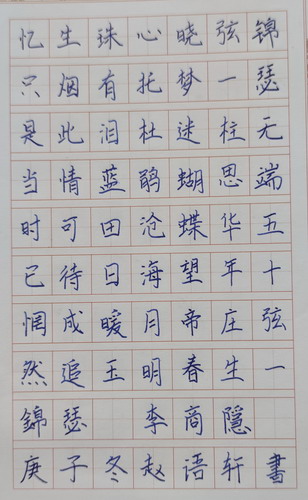 锦瑟无端五十弦一
弦一柱思华年庄生
晓梦迷蝴蝶望帝春
心托杜鹃沧海月明
珠有泪蓝田日暖玉
生烟此情可待成追
忆只是当时已惘然
錦瑟 李商隱
庚子冬赵语轩書